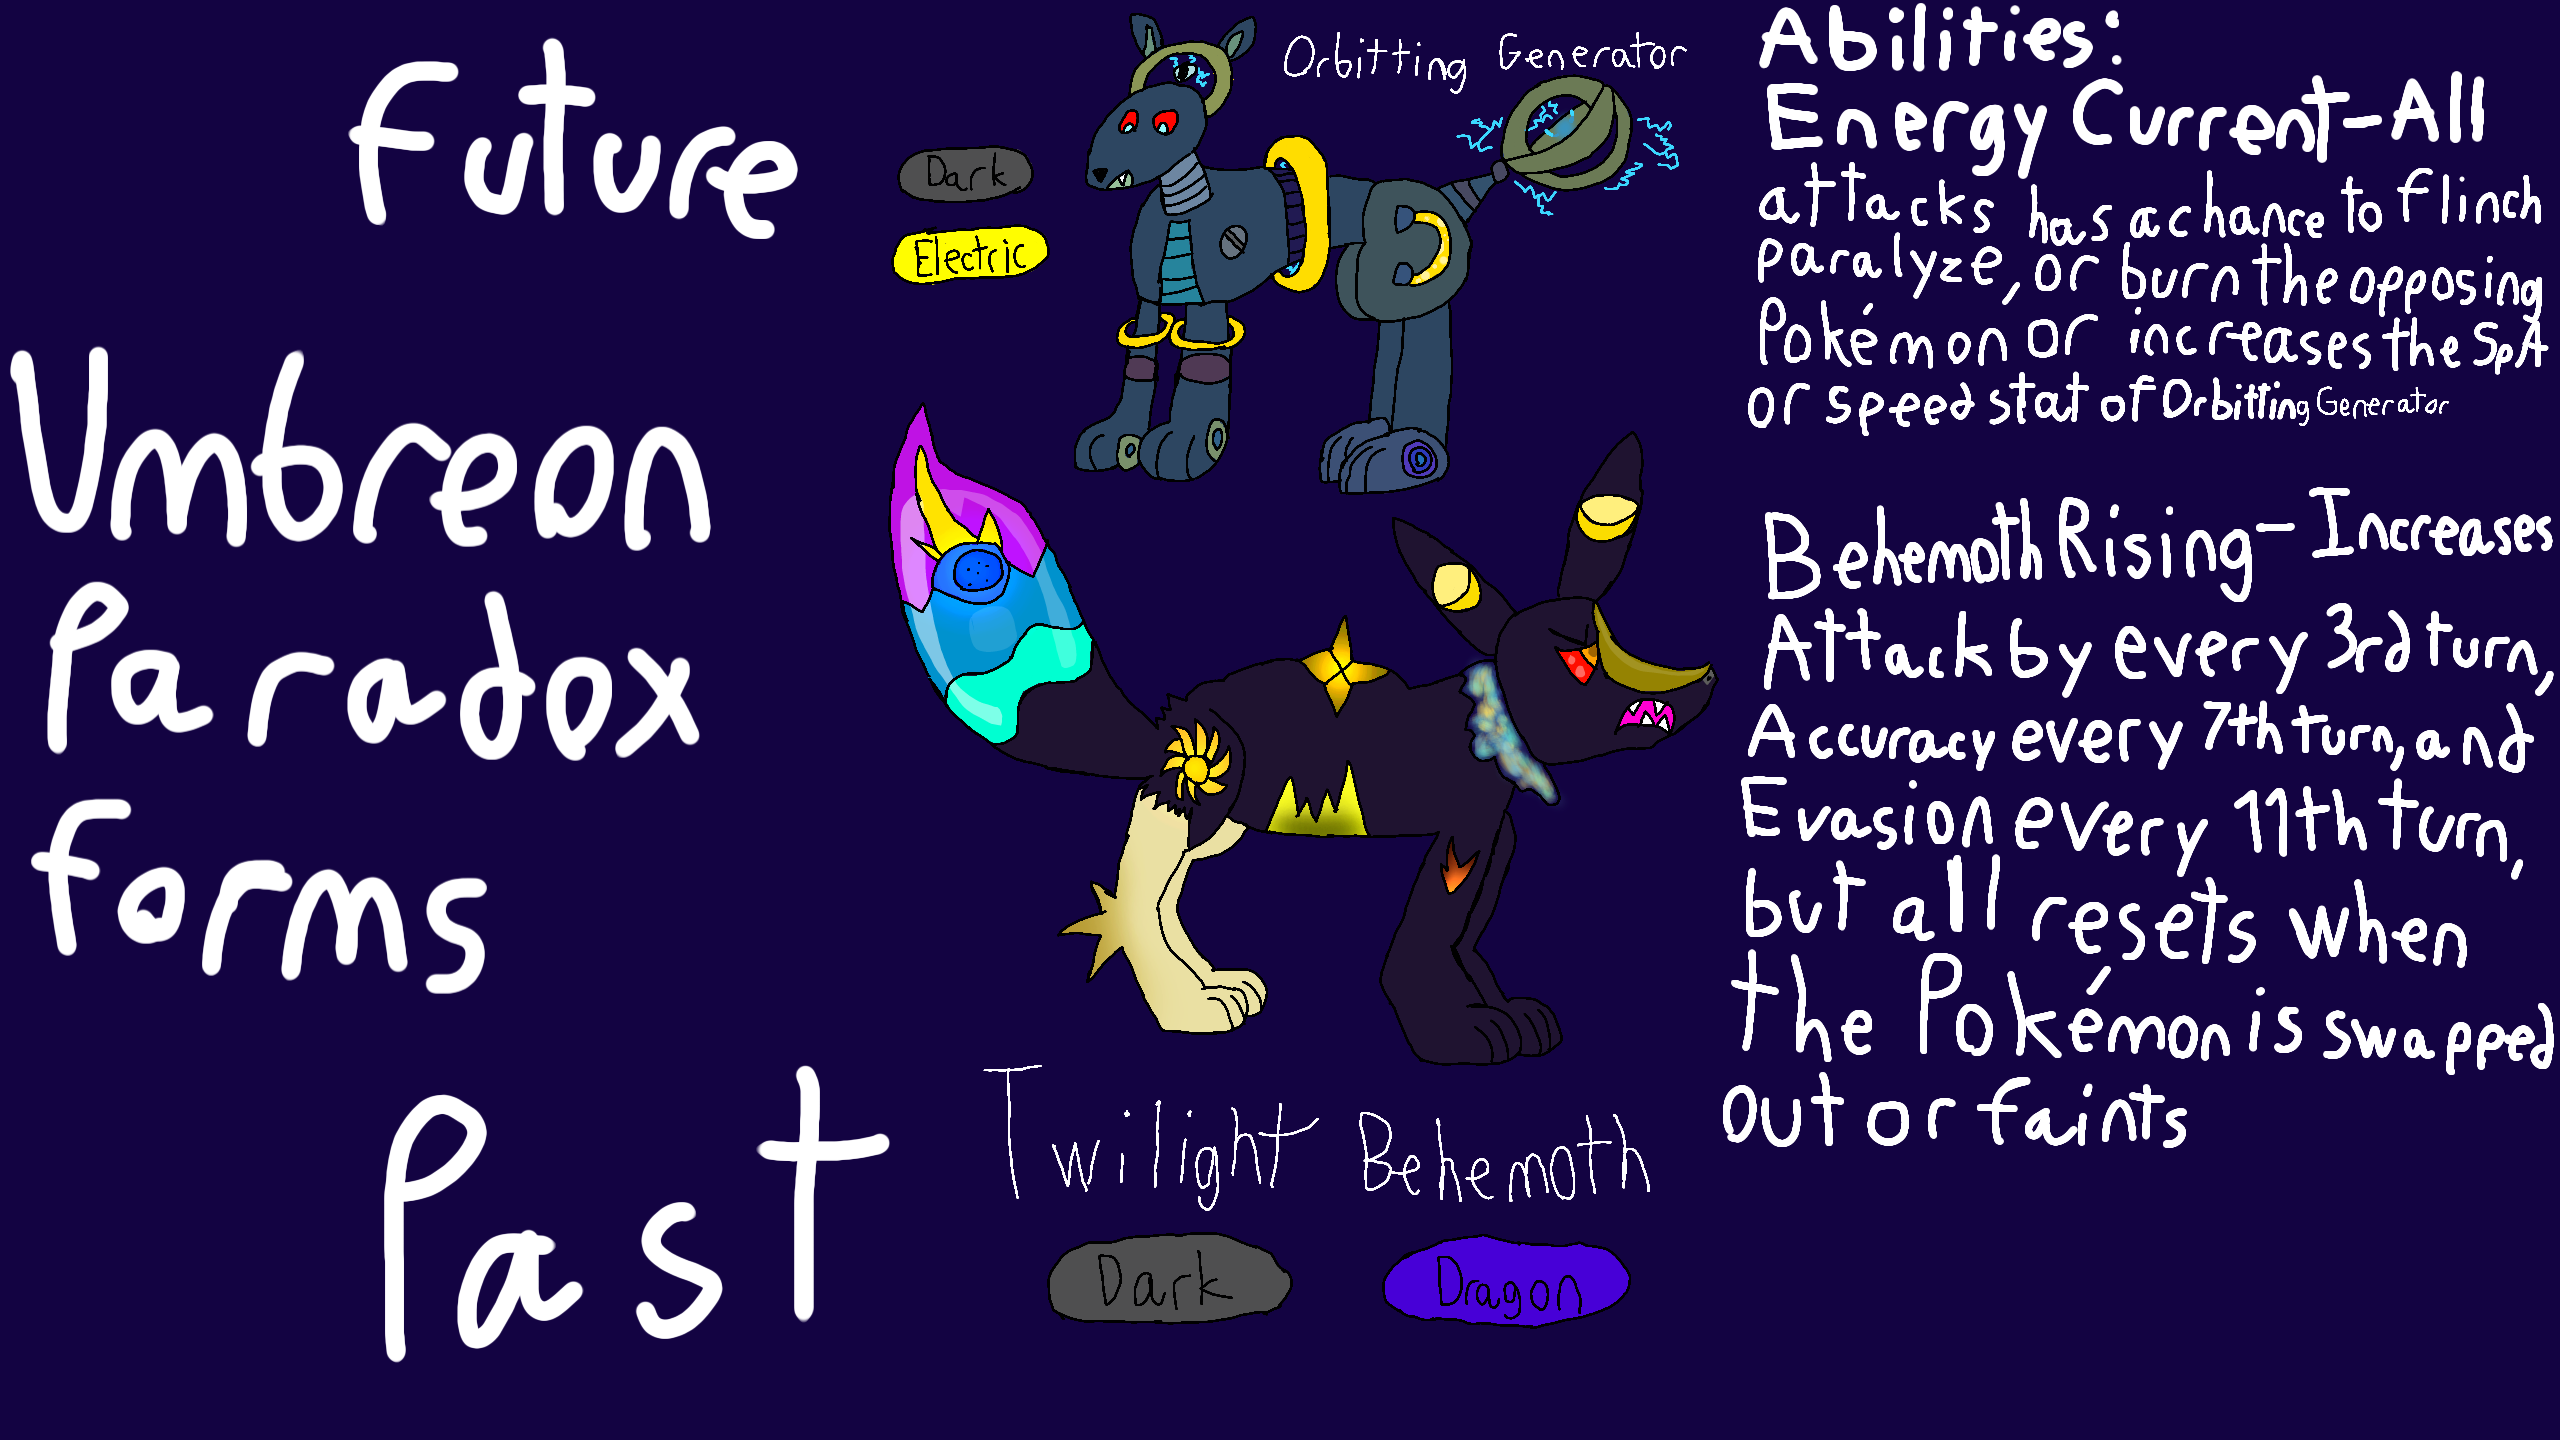 Future
Umbreon
Paradox
forms
Past
Orbitting Generator
Dark
Electric
Twilight Behemoth
Dark
Dragon
Abilities:
Energy Current-All
attacks has a chance to flinch
paralyze, or burn the opposing
Pokémon or increases the SpA
or speed stat of Orbitting Generator
Behemoth Rising-Increases
Attack by every 3rd turn,
Accuracy every 7th turn, and
Evasion every 11th turn,
but all resets when
the Pokémon is swapped
out or faints